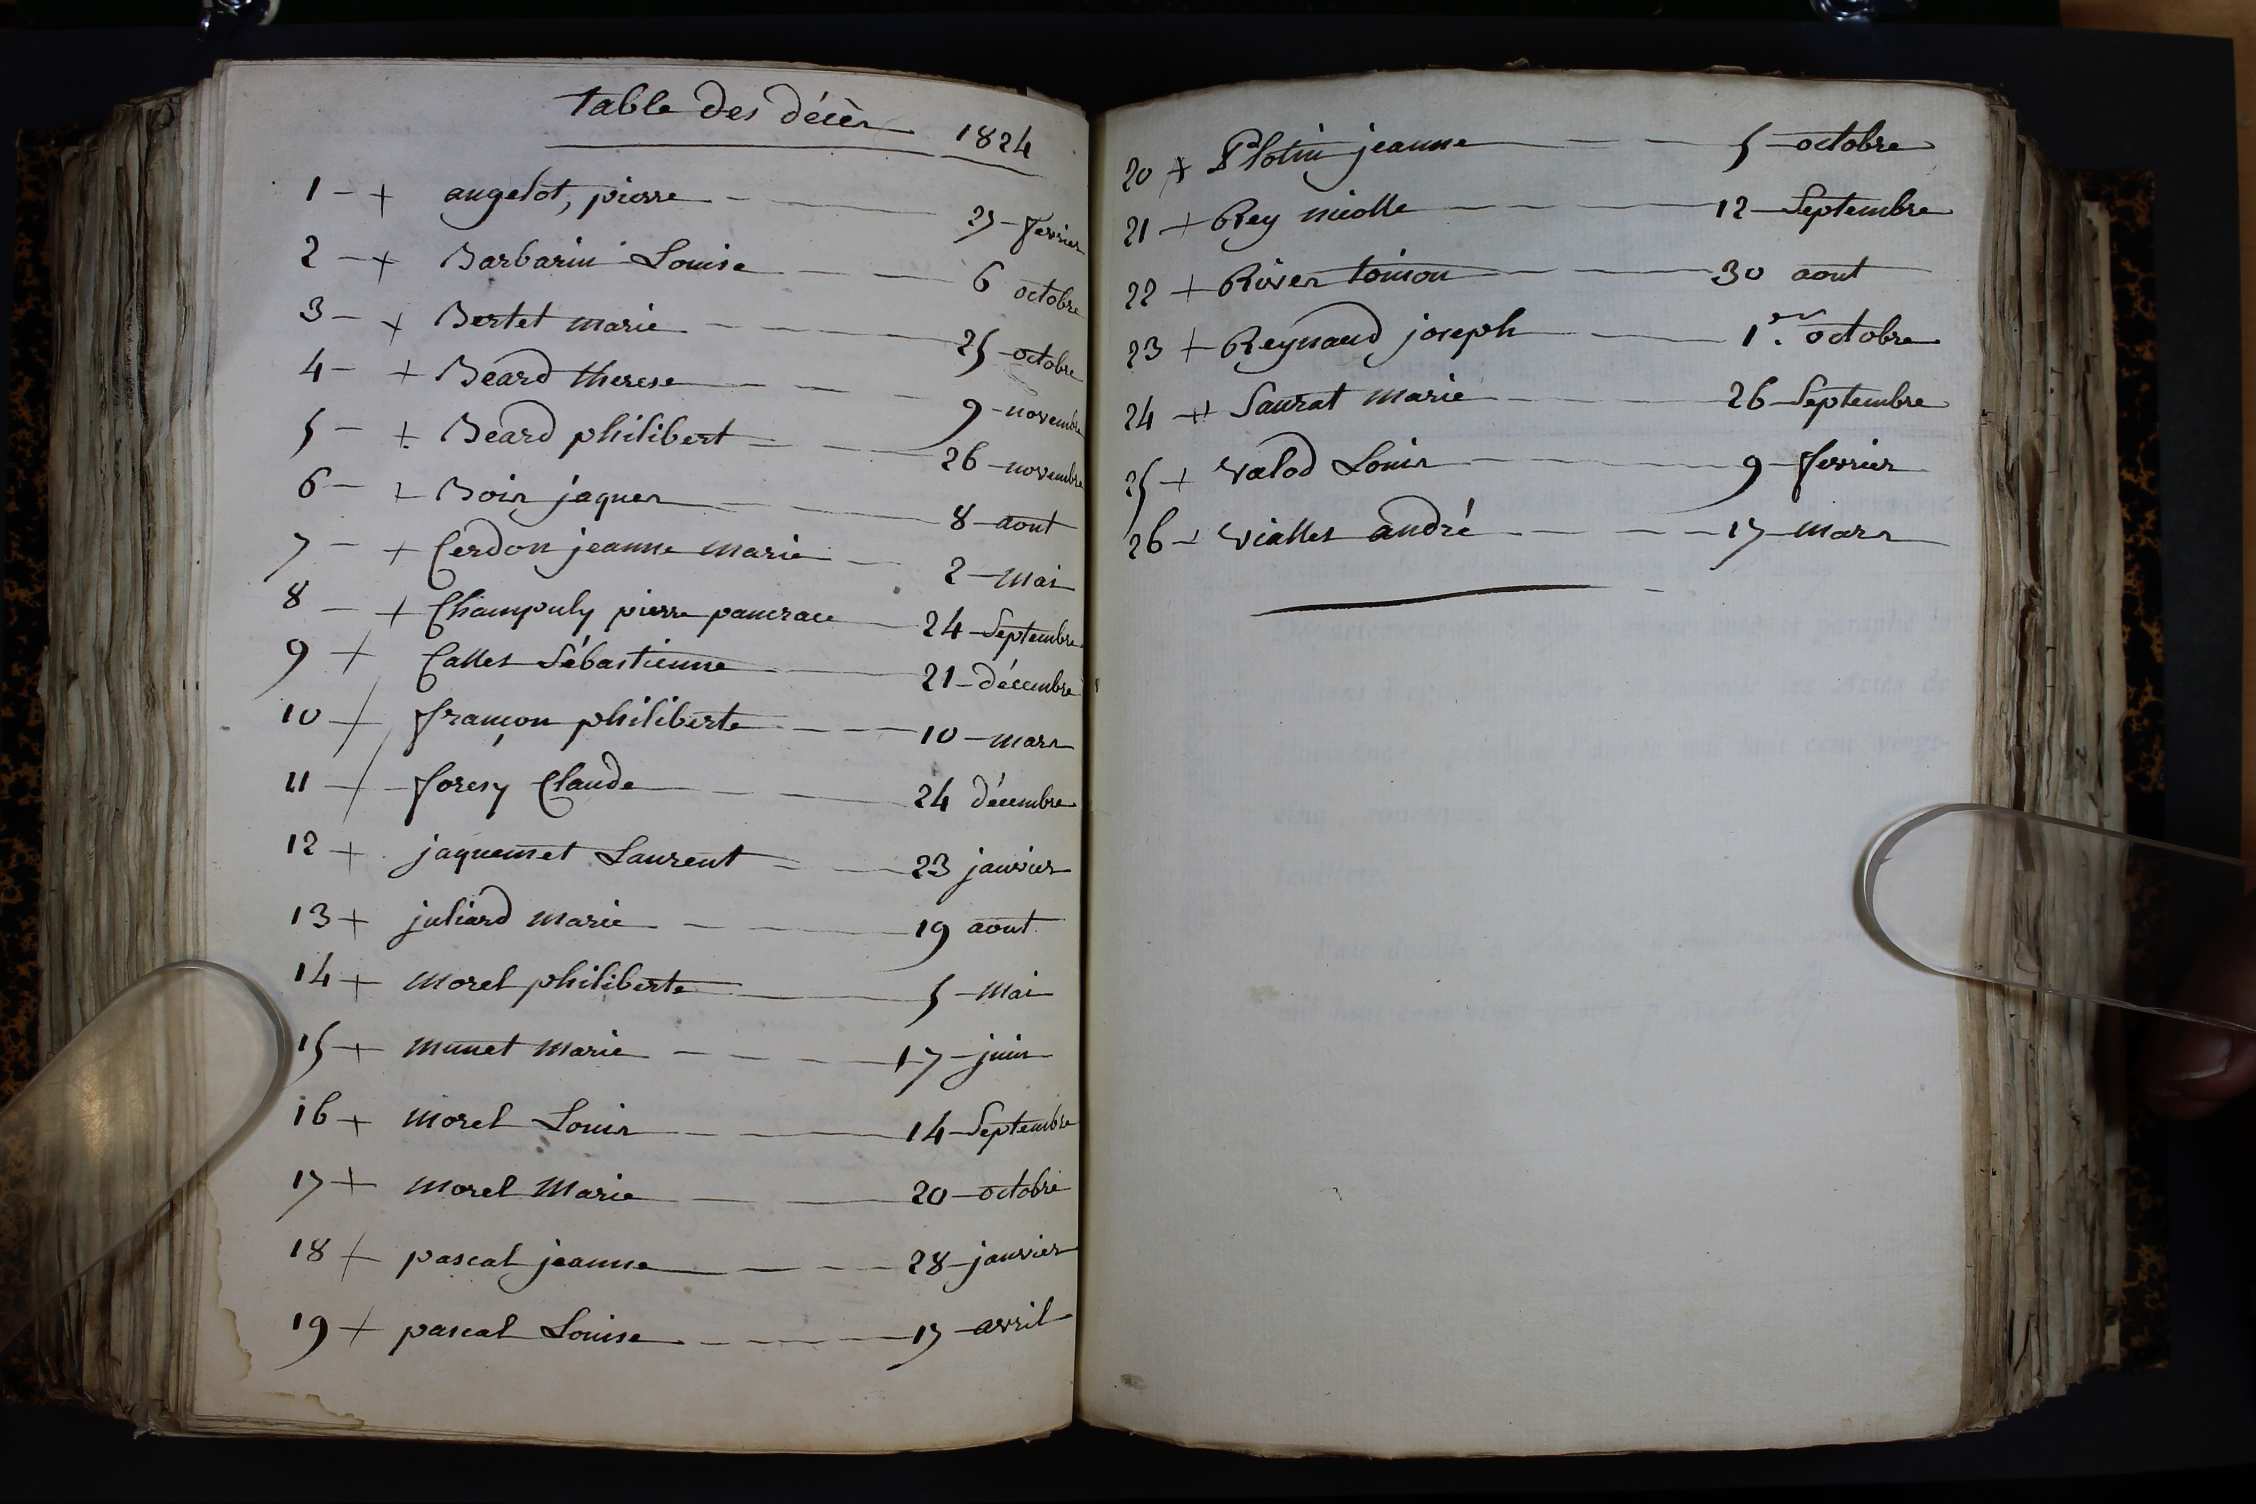 Table des décès 1824
1 - + angelot, pierre - 27 - fevrier
2 - + Barbarin Louise - 6 octobre
3 - + Bertet marie - 25 - octobre
4 - + Béard therese - 9 - novembre
5 - + Béard philibert - 26 - novembre
6 - + Bois jaques - 8 - aout
7 - + Cerdon jeanne marie - 2 - mai
8 - + Champuly pierre pancrace - 24 - Septembre
9 + Callet Sébastienne - 21 - décembre
10 + françon philiberte - 10 - mars
11 + foresy Claude - 24 décembre
12 + jaquemet Laurent - 23 janvier
13 + juliard marie - 19 aout
14 + morel philiberte - 5 - mai
15 + munet marie - 17 - juin
16 + morel Louis - 14 - Septembre
17 + morel Marie - 20 - octobre
18 + pascal jeanne - 28 - janvier
19 + pascal Louise - 17 - avril
20 + Plotin jeanne - 5 - octobre
21 + Rey nicolle - 12 - Septembre
22 + River toinon - 30 aout
23 + Reynaud joseph - 1.er octobre
24 + Saurat marie - 26 - Septembre
25 + valod Louis - 9 - fevrier
26 + viallet andré - 17 - mars